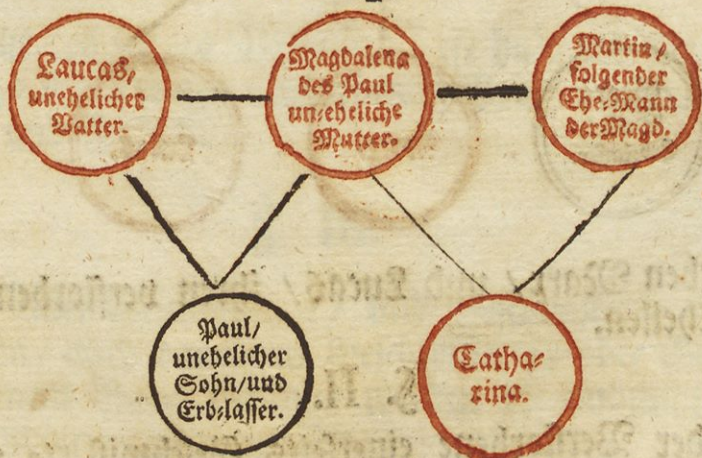 Laucas,
unehelicher
Vatter.
Magdalena
des Paul
un-eheliche
Mutter.
Martin /
folgender
Ehe-Mann
der Magd.
Paul/
unehelicher
Sohn/und
Erb-lasser.
Catha-
rina.